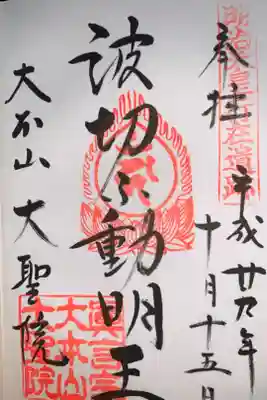 奉拝
平成廿九年
十月十五日
波切不動明王
大本山 大聖院
大本山